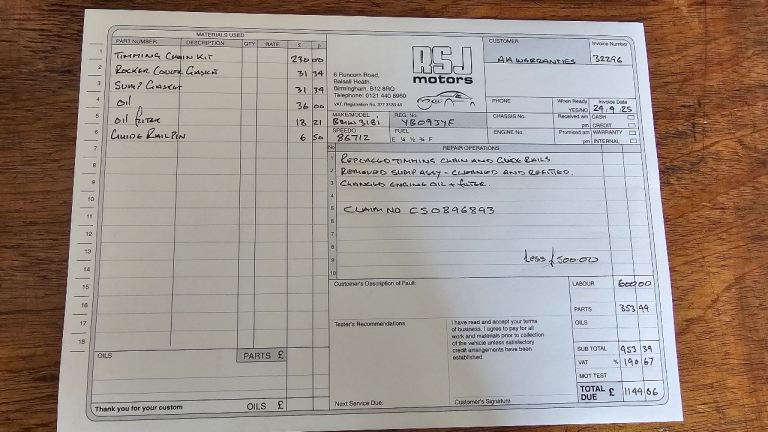 MATERIALS USED
PART NUMBER DESCRIPTION QTY RATE £ p
1 TIMMING CHAIN KIT 230 00
2 ROCKER COVER GASKET 31 34
3 SUMP GASKET 31 34
4 OIL 36 00
5 OIL FILTER 18 21
6 GUIDE RAIL PIN 6 50
7
8
9
10
11
12
13
14
15
16
17
18
OILS PARTS £
Thank you for your custom OILS £
RSJ
motors
6 Runcorn Road,
Balsall Heath,
Birmingham, B12 8RQ
Telephone: 0121 440 6960
CUSTOMER
AA WARRANTIES
Invoice Number
32296
PHONE
When Ready
YES/NO
Invoice Date
24.9.25
MAKE/MODEL
BMW 318i
REG. No.
YB09JYF
CHASSIS No.
Received am
pm
CASH
CREDIT
SPEEDO
86712
FUEL
E ¼ ½ ¾ F
ENGINE No.
Promised am
pm
WARRANTY
INTERNAL
No REPAIR OPERATIONS
1 REPLACED TIMMING CHAIN AND GUIDE RAILS
2 REMOVED SUMP ASSY - CLEANED AND REFITTED.
3 CHANGED ENGINE OIL + FILTER.
4
5 CLAIM NO CS0896893
6
7
8
9 Less £500.00
10
Customer's Description of Fault:
LABOUR 600 00
PARTS 353 49
OILS
Tester's Recommendations
I have read and accept your terms
of business. I agree to pay for all
work and materials prior to collection
of the vehicle unless satisfactory
credit arrangements have been
established.
SUB TOTAL 953 39
VAT % 190 67
MOT TEST
TOTAL DUE £ 1144 06
Next Service Due:
Customer's Signature